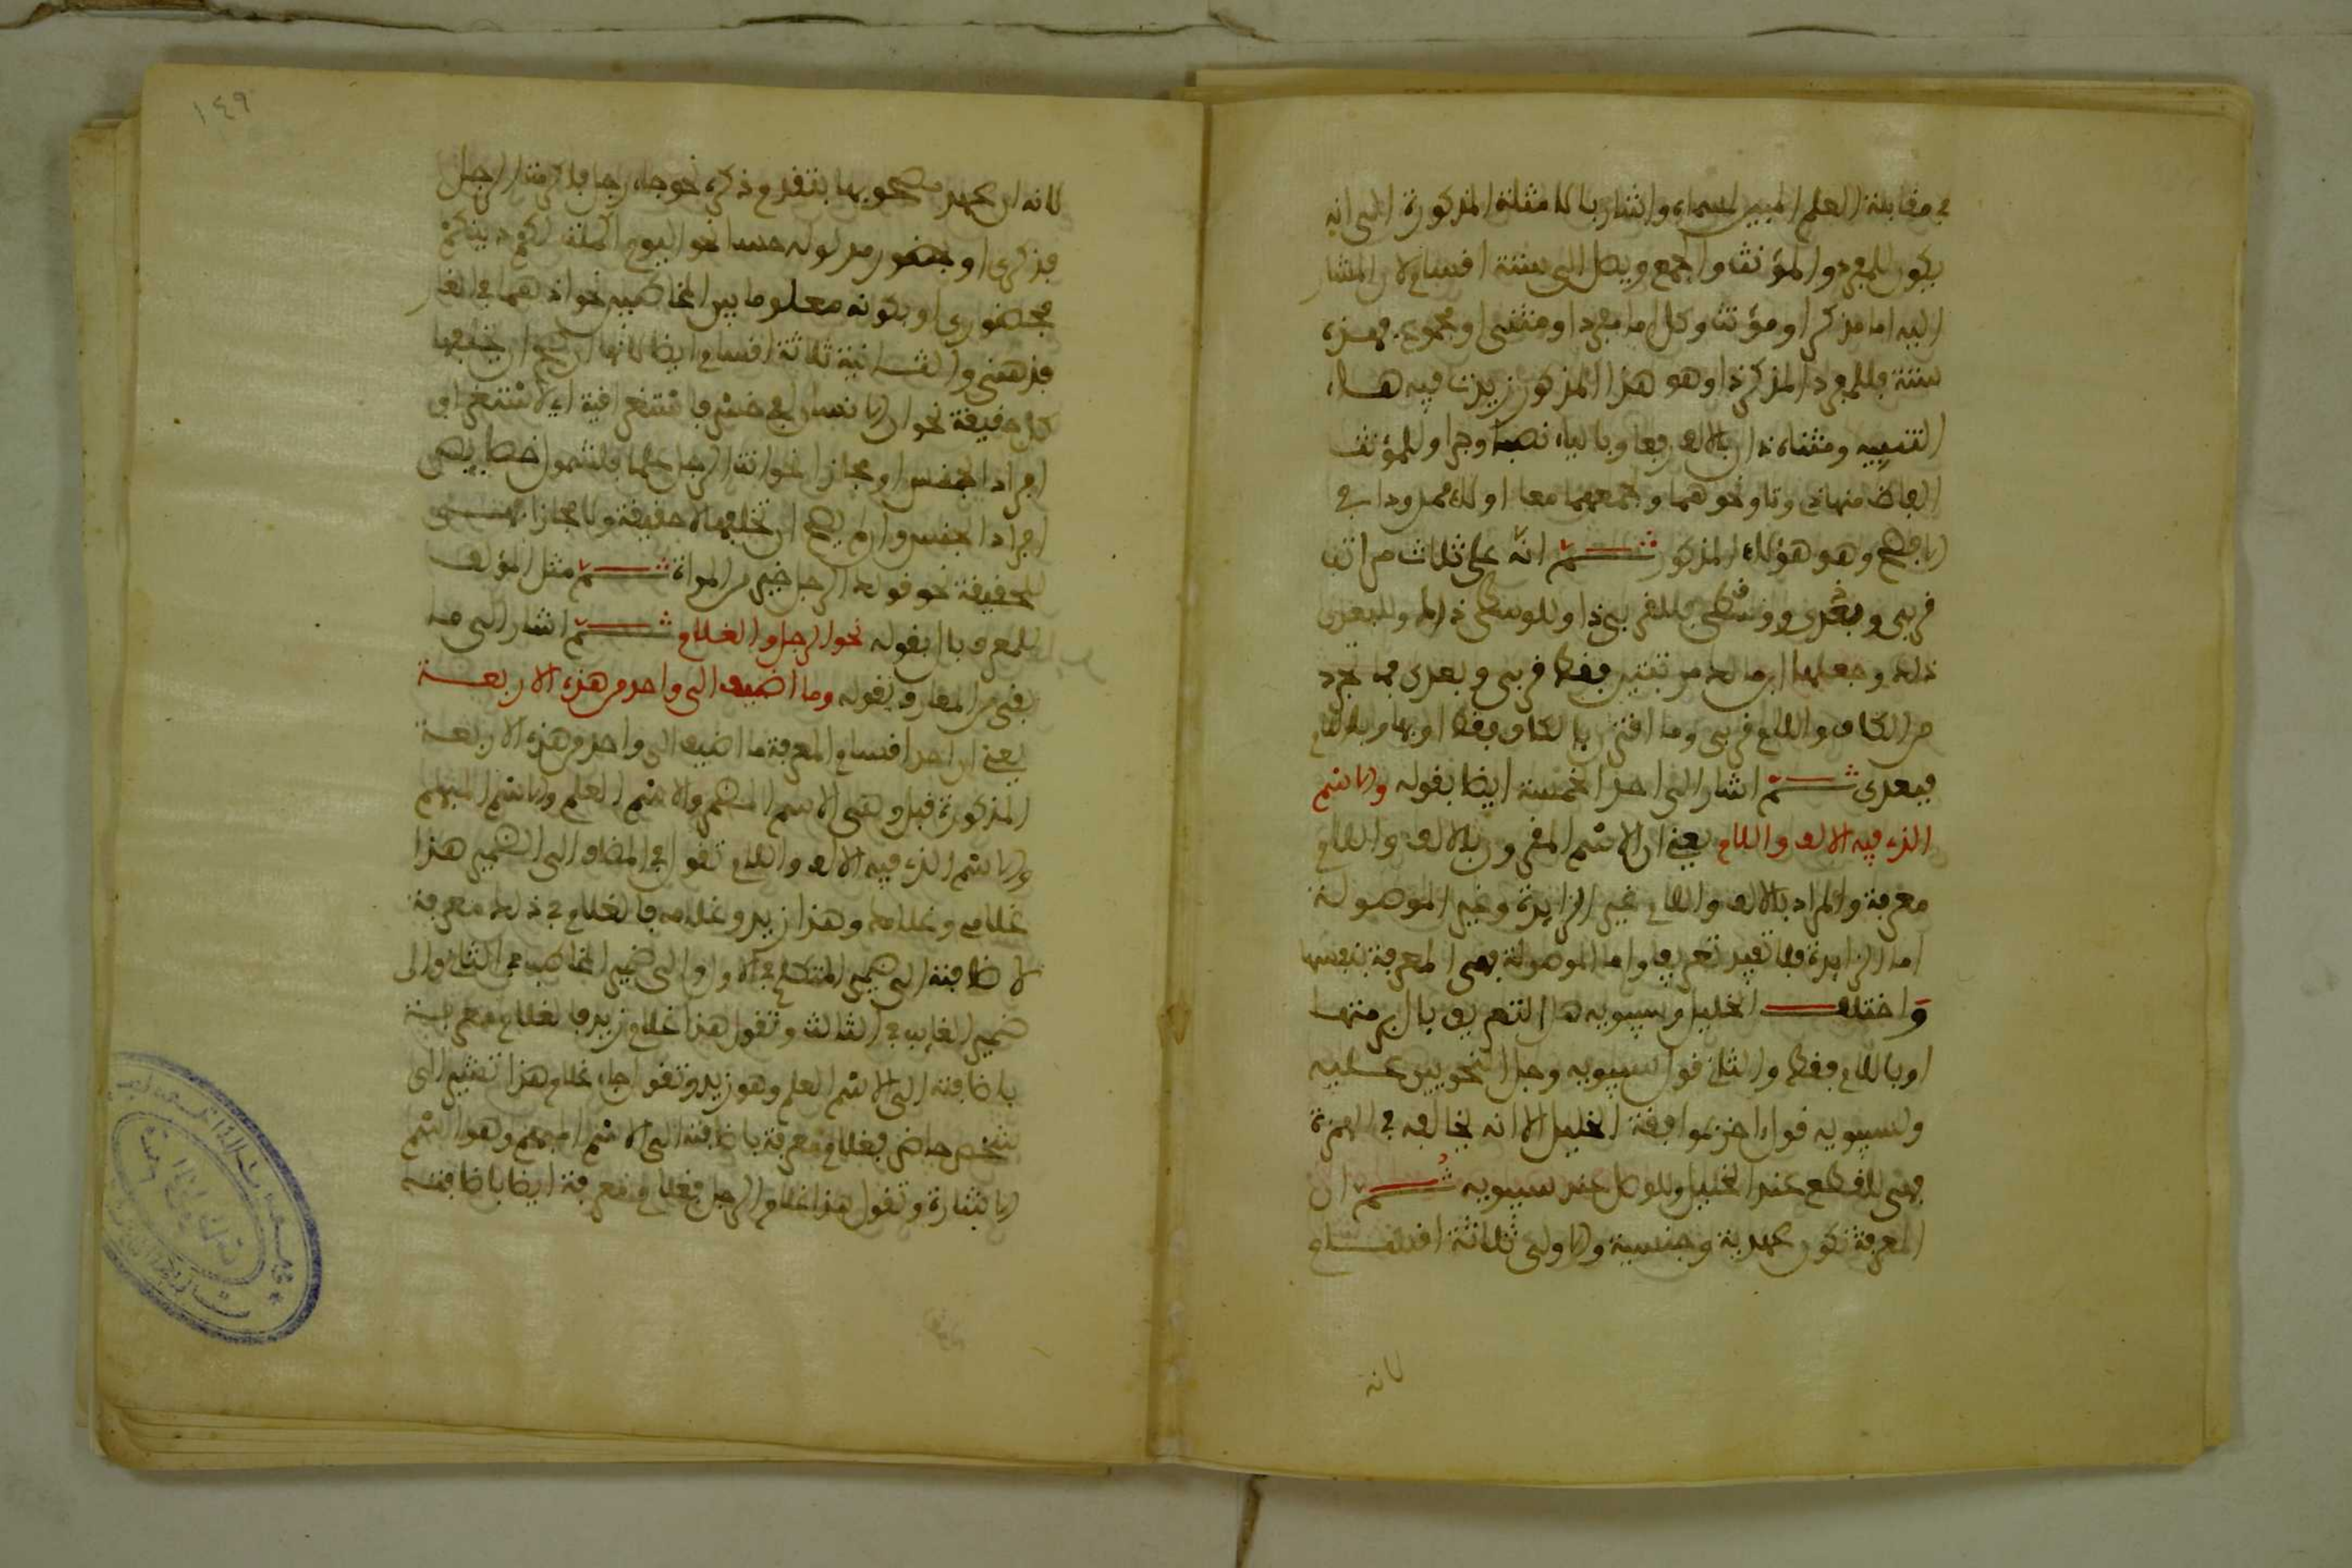 في مقابلة العلم المبين لمسماه وأشار بالامثلة المذكورة الى انه
يكون للمفرد والمؤنث والجمع ويصل الى ستة اقسام لان المشار
اليه اما مذكر او مؤنث وكل اما مفرد او مثنى او مجموع فهذه
ستة فللمفرد المذكر ذا وهو هذا المذكور زيدت فيه هاء
التنبيه ومثناه ذان بالالف رفعا وبالياء نصبا وجرا وللمؤنث
الفاظ منها ذي وتا ونحوهما وجمعهما معا اولاء ممدودا في
الافصح وهو هؤلاء المذكور ثم انه على ثلاث مراتب
قربى وبعدى ووسطى فللقربى ذا وللوسطى ذاك وللبعدى
ذلك وجعلها ابن مالك مرتبتين فقط قربى وبعدى فما تجرد
من الكاف واللام قربى وما اقترن بالكاف فقط او بها وباللام
فبعدى ثم اشار الى احد الخمسة ايضا بقوله والاسم
الذي فيه الالف واللام يعني ان الاسم المقرون بالالف واللام
معرفة والمراد بالالف واللام غير الزايدة وغير الموصولة
اما الزايدة فلا تفيد تعريفا واما الموصولة فهي المعرفة بنفسها
واختلف الخليل وسيبويه هل التعريف بال برمتها
او باللام فقط والثاني قول سيبويه وجل النحويين عليه
ولسيبويه قول اخر بموافقة الخليل الا انه يخالفه في الهمزة
فهي للقطع عند الخليل وللوصل عند سيبويه ثم ال
المعرفة تكون عهدية وجنسية والاولى ثلاثة اقسام
لانه
١٤٩
لانه ان عهد مصحوبها بتقدم ذكره نحو جاء رجل فاكرمت الرجل
فذكرى او بحضور مدلوله حسا نحو اليوم اكملت لكم دينكم
فحضورى او بكونه معلوما بين المخاطبين نحو اذ هما في الغار
فذهنى والثانية ثلاثة اقسام ايضا لانها ان صح ان تخلفها
كل حقيقة نحو ان الانسان لفي خسر فاستغراقية اي لاستغراق
افراد الجنس او مجازا نحو انت الرجل علما فلشمول خصايص
افراد الجنس وان لم يصح ان تخلفها لا حقيقة ولا مجازا فهي
للحقيقة نحو قولك الرجل خير من المراة ثم مثل المؤلف
للمعرف بال بقوله نحو الرجل والغلام ثم اشار الى ما
بقي من المعارف بقوله وما اضيف الى واحد من هذه الاربعة
يعني ان احد اقسام المعرفة ما اضيف الى واحد من هذه الاربعة
المذكورة قبل وهي الاسم المضمر والاسم العلم والاسم المبهم
والاسم الذي فيه الالف واللام تقول في المضاف الى الضمير هذا
غلامي وغلامك وهذا زيد وغلامه فالغلام في ذلك معرفة
لاضافته الى ضمير المتكلم في الاول والى ضمير المخاطب في الثاني والى
ضمير الغايب في الثالث وتقول هذا غلام زيد فالغلام معرفة
باضافته الى الاسم العلم وهو زيد وتقول جاء غلام هذا تشير الى
شخص حاضر فغلام معرفة باضافته الى الاسم المبهم وهو اسم
الاشارة وتقول هذا غلام الرجل فغلام معرفة ايضا باضافته